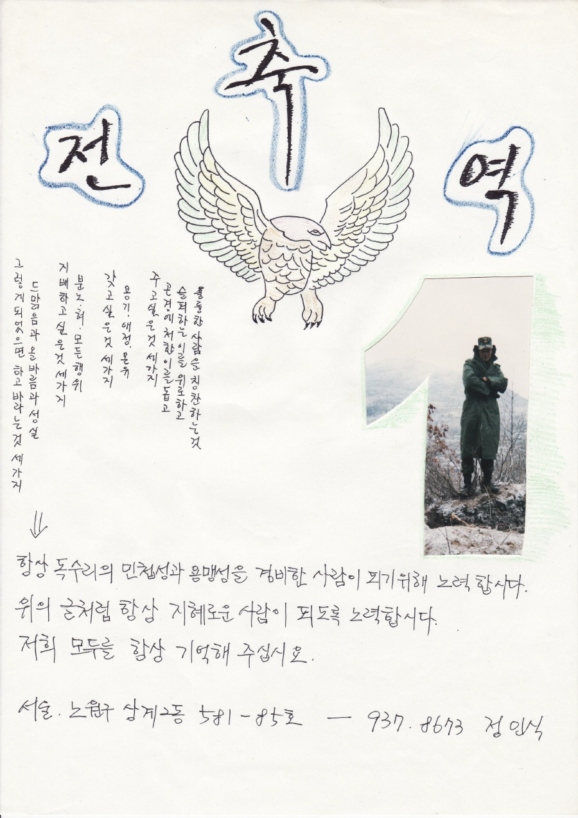 축
전 역
그렇게되었으면 하고 바라는것 세가지
드맑음과 올바름과 성실
지배하고 싶은것 세가지
분노.혀.모든행위
갖고싶은것 세가지
용기.애정.온유
주고싶은것 세가지
곤경에 처한이를 돕고
슬퍼하는이를 위로하고
훌륭한 사람을 칭찬하는것
항상 독수리의 민첩성과 용맹성을 겸비한 사람이 되기위해 노력합시다.
위의 글처럼 항상 지혜로운 사람이 되도록 노력합시다.
저희 모두를 항상 기억해 주십시요.
서울. 노원구 상계2동 581-85호 — 937.8673 정인식